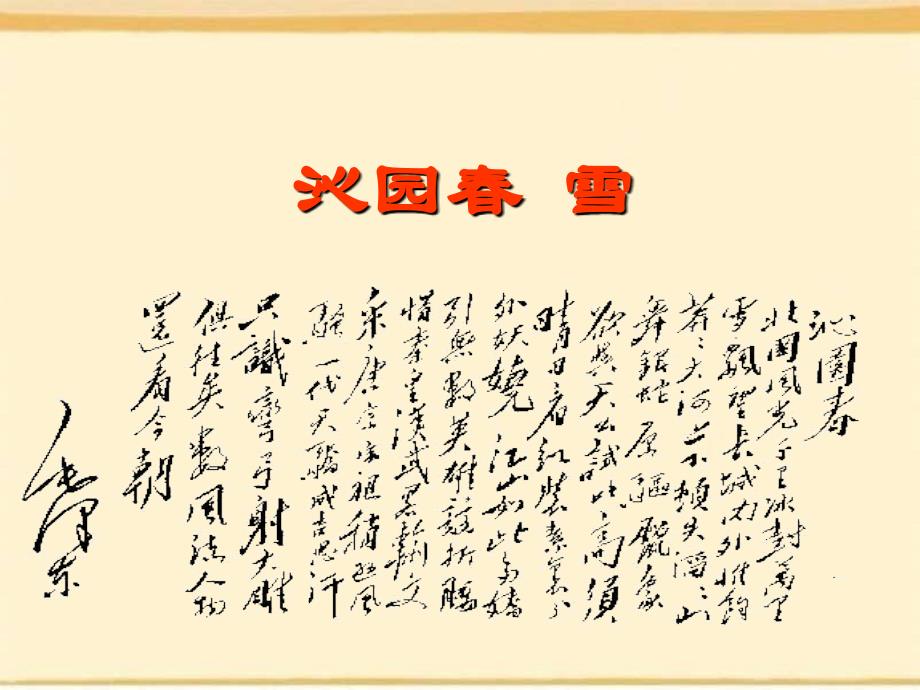 沁园春 雪
沁園春
北國風光千里冰封萬里
雪飄望長城內外惟餘
莽〻大河上下頓失滔〻山
舞銀蛇原驅臘象
欲與天公試比高須
晴日看紅裝素裹分
外妖嬈江山如此多嬌
引無數英雄競折腰
惜秦皇漢武略輸文
采唐宗宋祖稍遜風
騷一代天驕成吉思汗
只識彎弓射大雕
俱往矣數風流人物
還看今朝
毛澤東